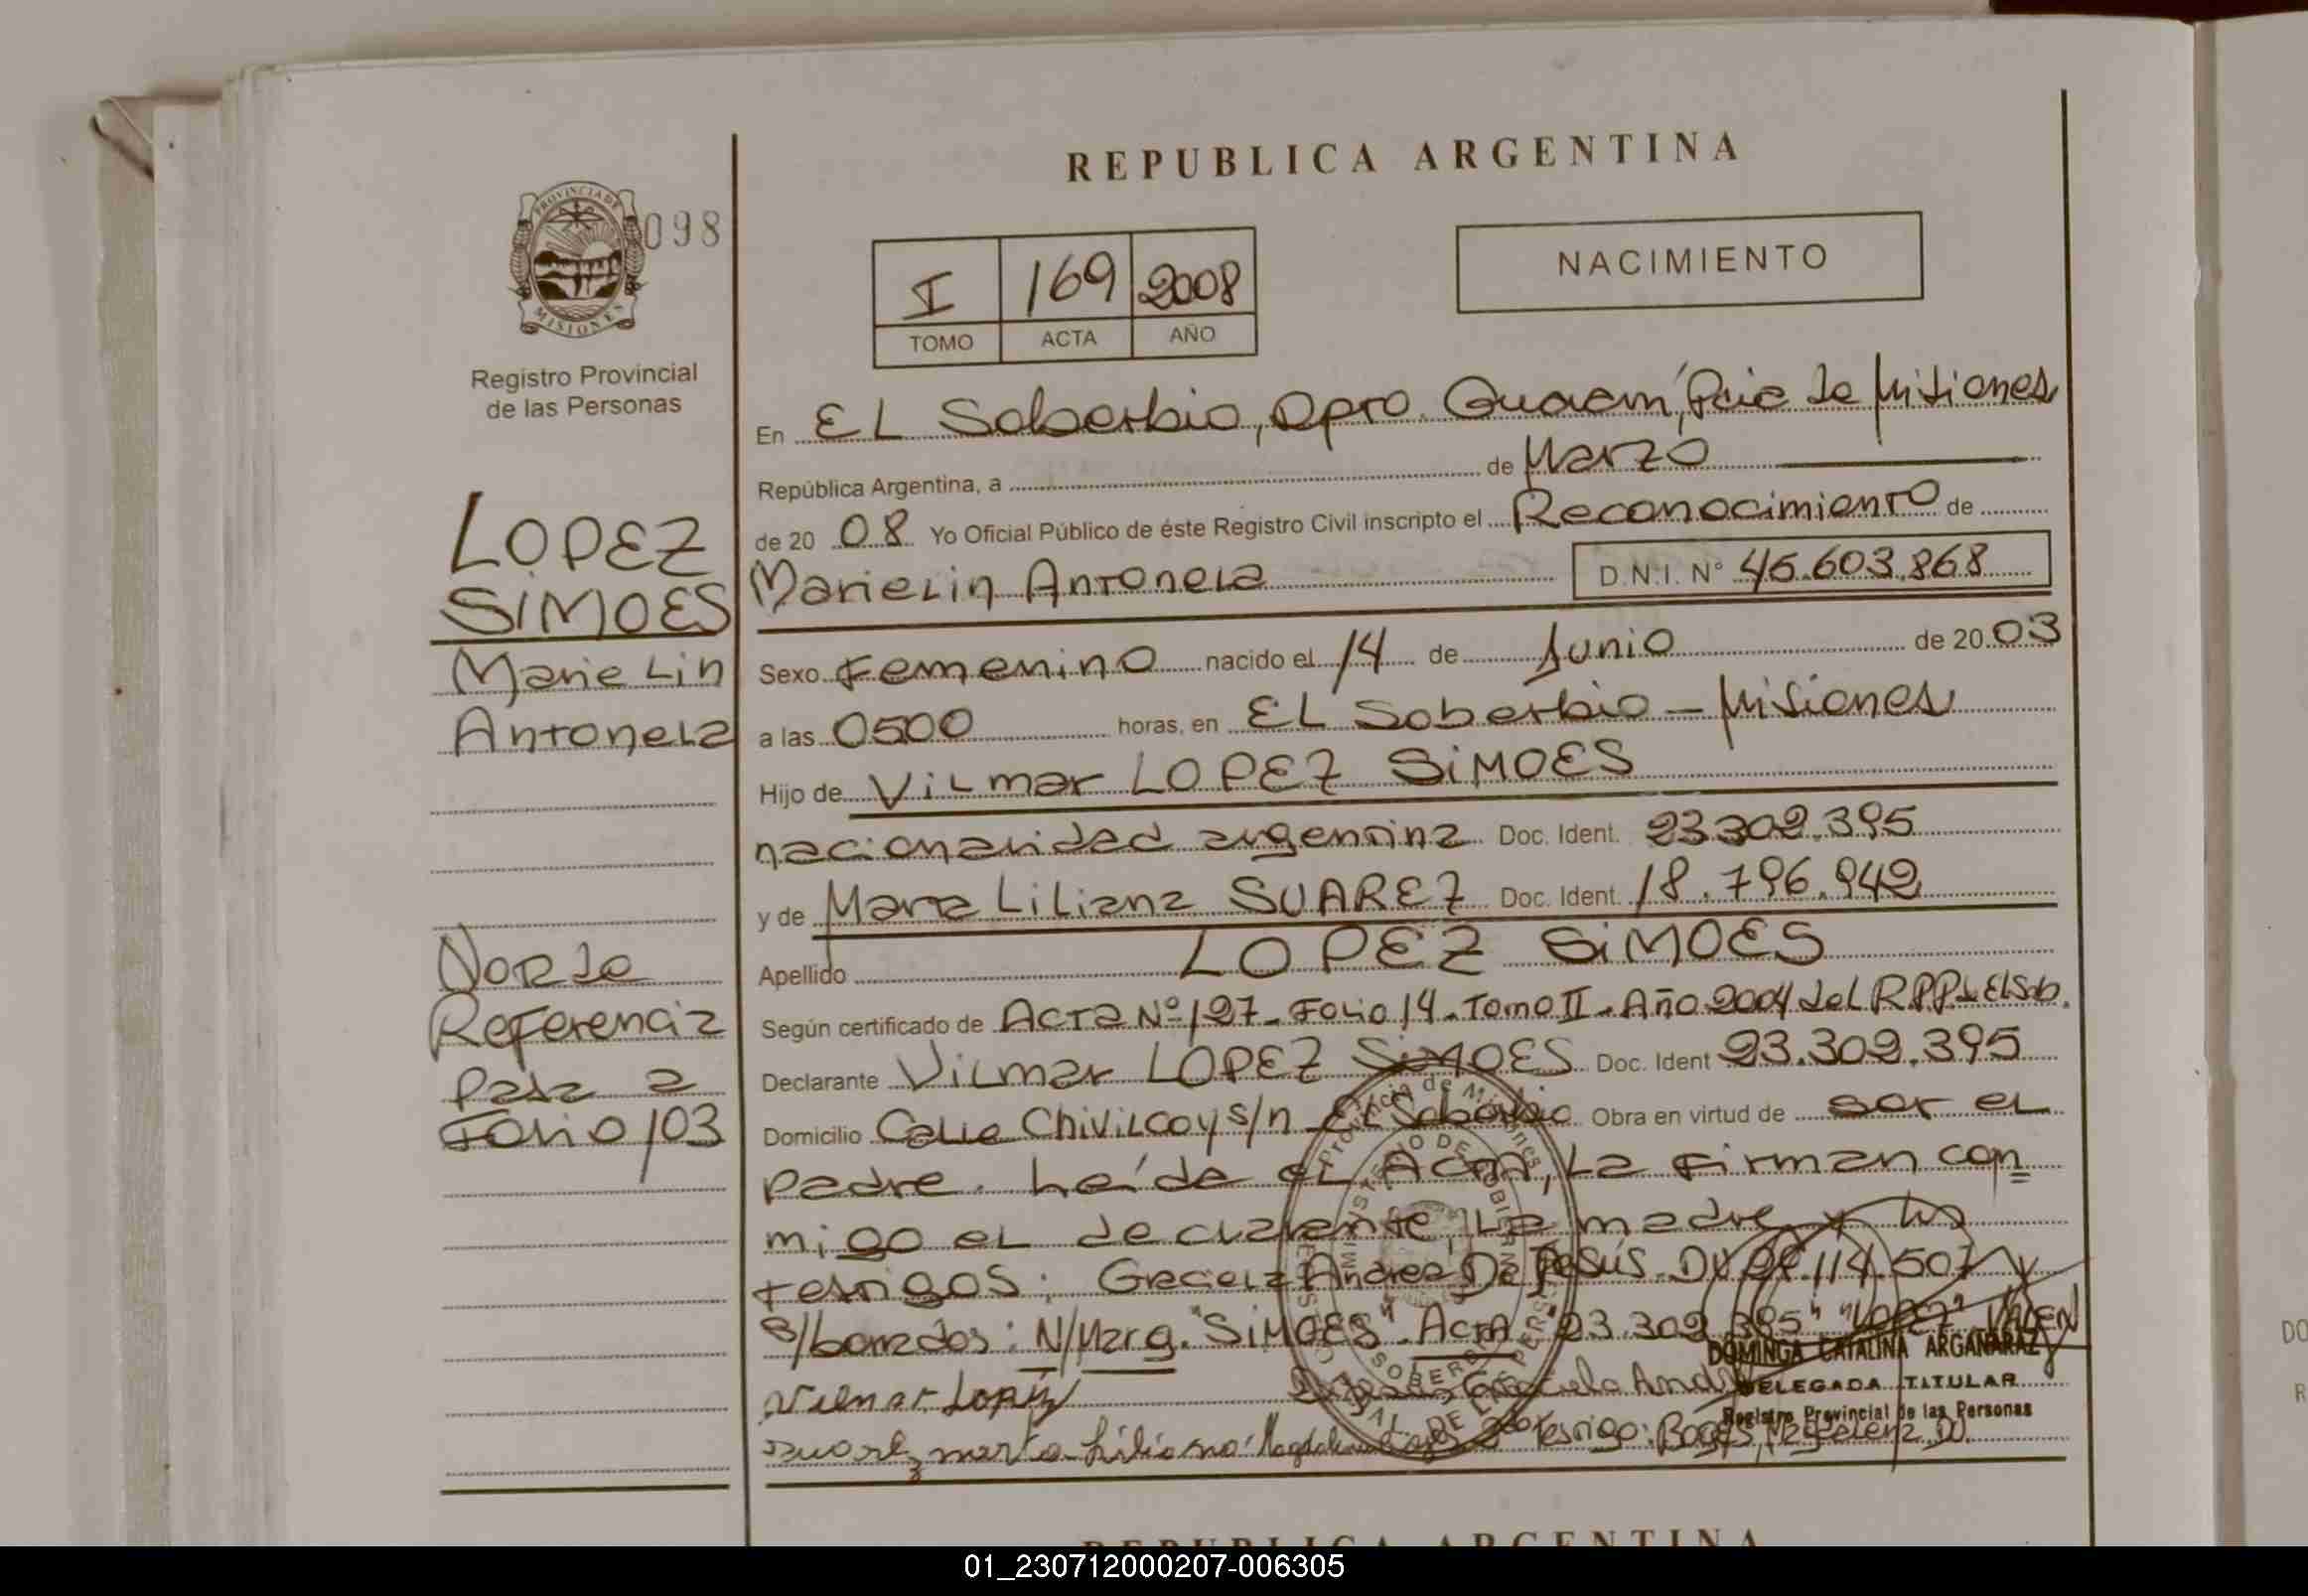 REPUBLICA ARGENTINA
PROVINCIA DE
MISIONES
098
Registro Provincial
de las Personas
I 169 2008
TOMO ACTA AÑO
NACIMIENTO
LOPEZ
SIMOES
Marielin
Antonela
Nota de
Referencia
Pasa a
Folio 103
En EL Soberbio, Dpto. Guaraní, Pcia de Misiones
República Argentina, a de Marzo
de 20 08 Yo Oficial Público de éste Registro Civil inscripto el Reconocimiento de
Marielin Antonela D.N.I. Nº 45.603.868
Sexo Femenino nacido el 14 de Junio de 20 03
a las 0500 horas, en EL Soberbio - Misiones
Hijo de Vilmar LOPEZ SiMOES
nacionalidad argentina Doc. Ident. 23.302.395
y de Maria Liliana SUAREZ Doc. Ident. 18.796.942
Apellido LOPEZ SiMOES
Según certificado de Acta Nº 127 - Folio 14 - Tomo II - Año 2004 del R.P.P. de El Sob.
Declarante Vilmar LOPEZ SiMOES Doc. Ident 23.302.395
Domicilio Calle Chivilcoy s/n El Soberbio Obra en virtud de ser el
padre. Leída el Acta, la firman con
migo el declarante, la madre y los
testigos: Graciela Andrea De Jesús. DU 114.507 y
s/borrados: N/Marg. "SiMOES". Acta 23 302 395" "LOPEZ" VALEN
DOMINGA CATALINA ARGAÑARAZ
DELEGADA TITULAR
Registro Provincial de las Personas
Vilmar Lopez Graciela
suarez maria Liliana Magdalena 2do Testigo: Magdalena DU.
Provincia de Misiones
REPUBLICA ARGENTINA
01_230712000207-006305